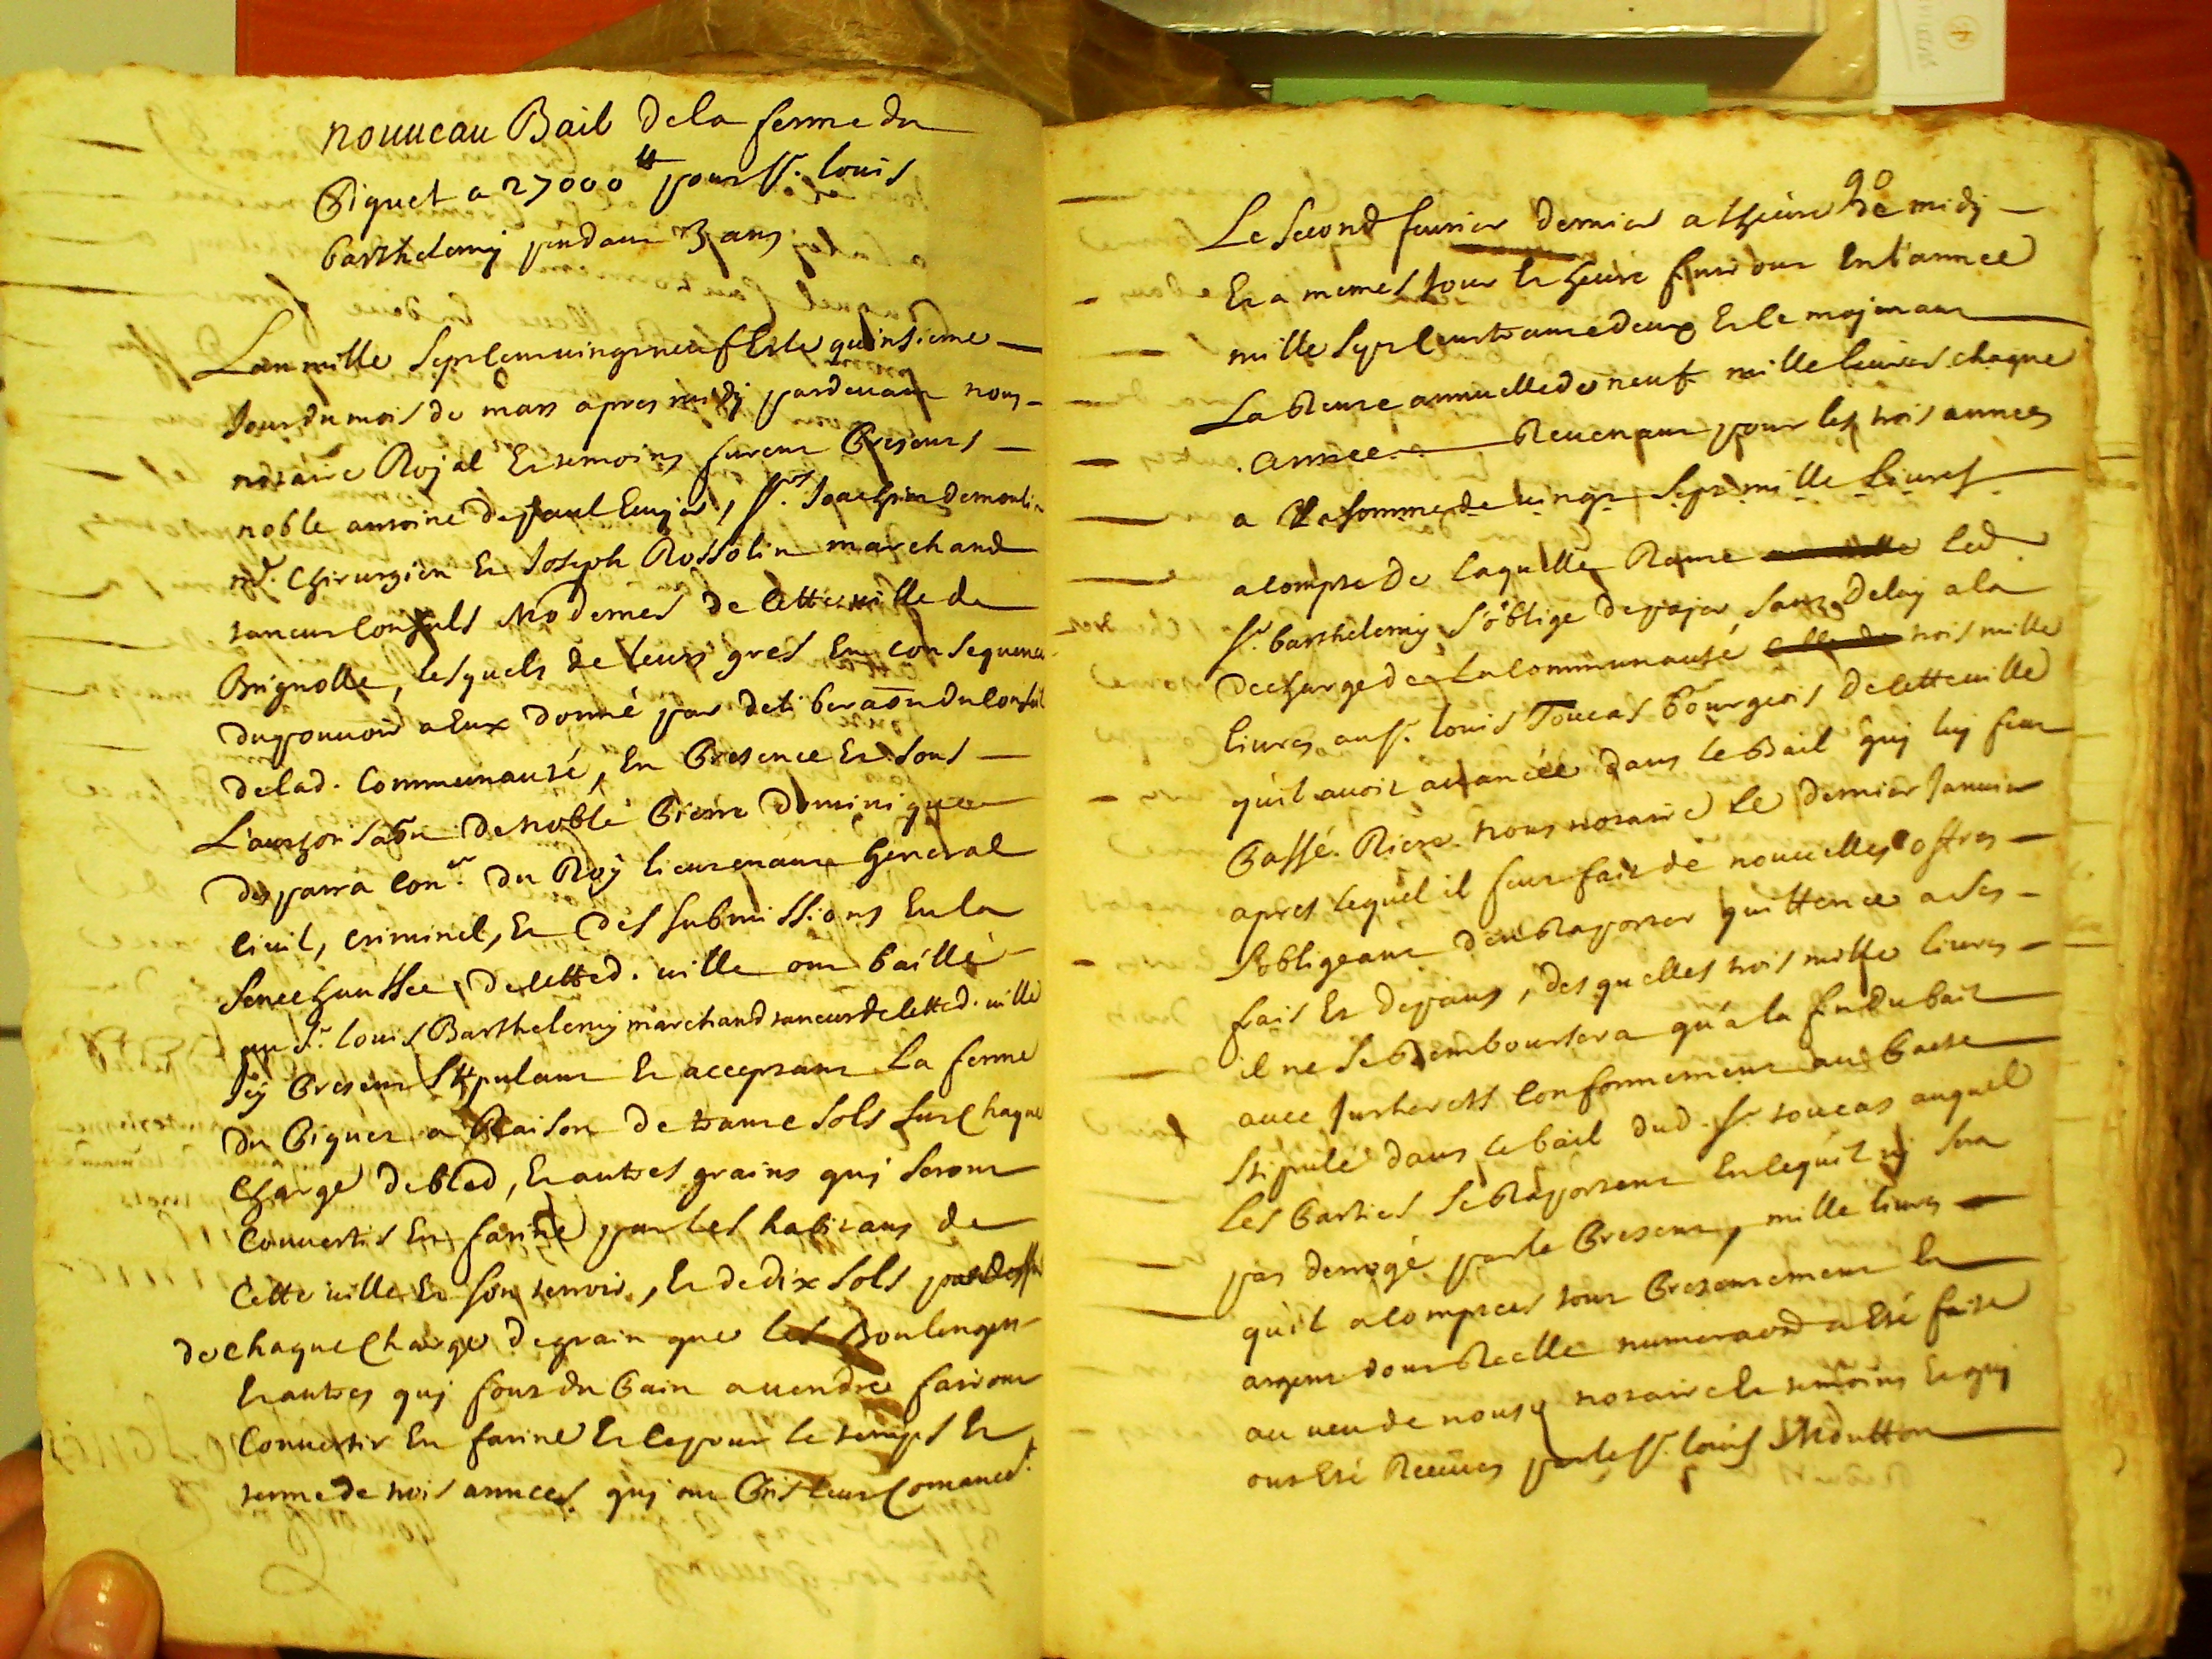 nouueau Bail dela ferme du
Piquet a 27000 ₶ pour Sr. louis
barthelemy pendant 3 ans
Lan mille sept cent vingt neuf et le quinsieme
Jour du mois de mars apres midy pardeuant nous
notaire Royal et temoins furent presents
noble antoine depaul Ecuyer, Srs. Joachim demoulin
md. chirurgien et Joseph Rossolin marchand
taneur Consuls Modernes de cette ville de
Brignolle, lesquels de leurs gres en consequence
du pouuoir a Eux donné par deliberaōn du Conseil
delad. Communauté, en presence et sous
L'authorisaōn de noble pierre dominique
desparra Conr. du Roy lieutenant general
ciuil, criminel, et des submissions en la
seneschaussée de cetted. ville ont baillé
au Sr. louis Barthelemy marchand taneur de cetted. ville
Jcy present stipulant et acceptant La ferme
du piquet a Raison de trante sols sur chaque
charge de bled, et autres grains quy seront
conuertis en farine par les habitans de
Cette ville et son terroir, et de dix sols par dessus
de chaque charge de grain que les Boulengers
et autres quy font du pain a uendre fairont
Conuertir en farine et ce pour le temps et
terme de trois années quy ont pris leur Comancet.
90
Le second feurier dernier a lheure de midy
Et a memes Jour et heure finiront en l'année
mille sept cent trante deux et le moyenant
La Rente annuelle de neuf mille liures chaque
année Reuenant pour les trois années
a La somme de uingt sept mille Liures
a compte de laquelle Rante led.
Sr. barthelemy s'oblige de payer sans delay a la
decharge de La communauté trois mille
liures au Sr. louis Toucas bourgeois de cette uille
qu'il auoit auancée dans le Bail quy luy feut
passé Riere nous notaire le dernier Januier
apres lequel il feut fait de nouuelles offres
s'obligeant d'en Raporter quittence a ses
frais et depans, des quelles trois mille liures
il ne se Remboursera qu'a la fin du bail
auec Jntherets Conformement au pacte
stipulé dans le bail dud. Sr. toucas auquel
les parties se Raportent en ce qu'il ny sera
pas derrogé par le present, mille liures
qu'il a comptées tout presentement en
argent dont Reelle numeraōn a Eté faite
au ueu de nous notaire et temoins et quy
ont Eté Receües par le Sr. louis Mdutton